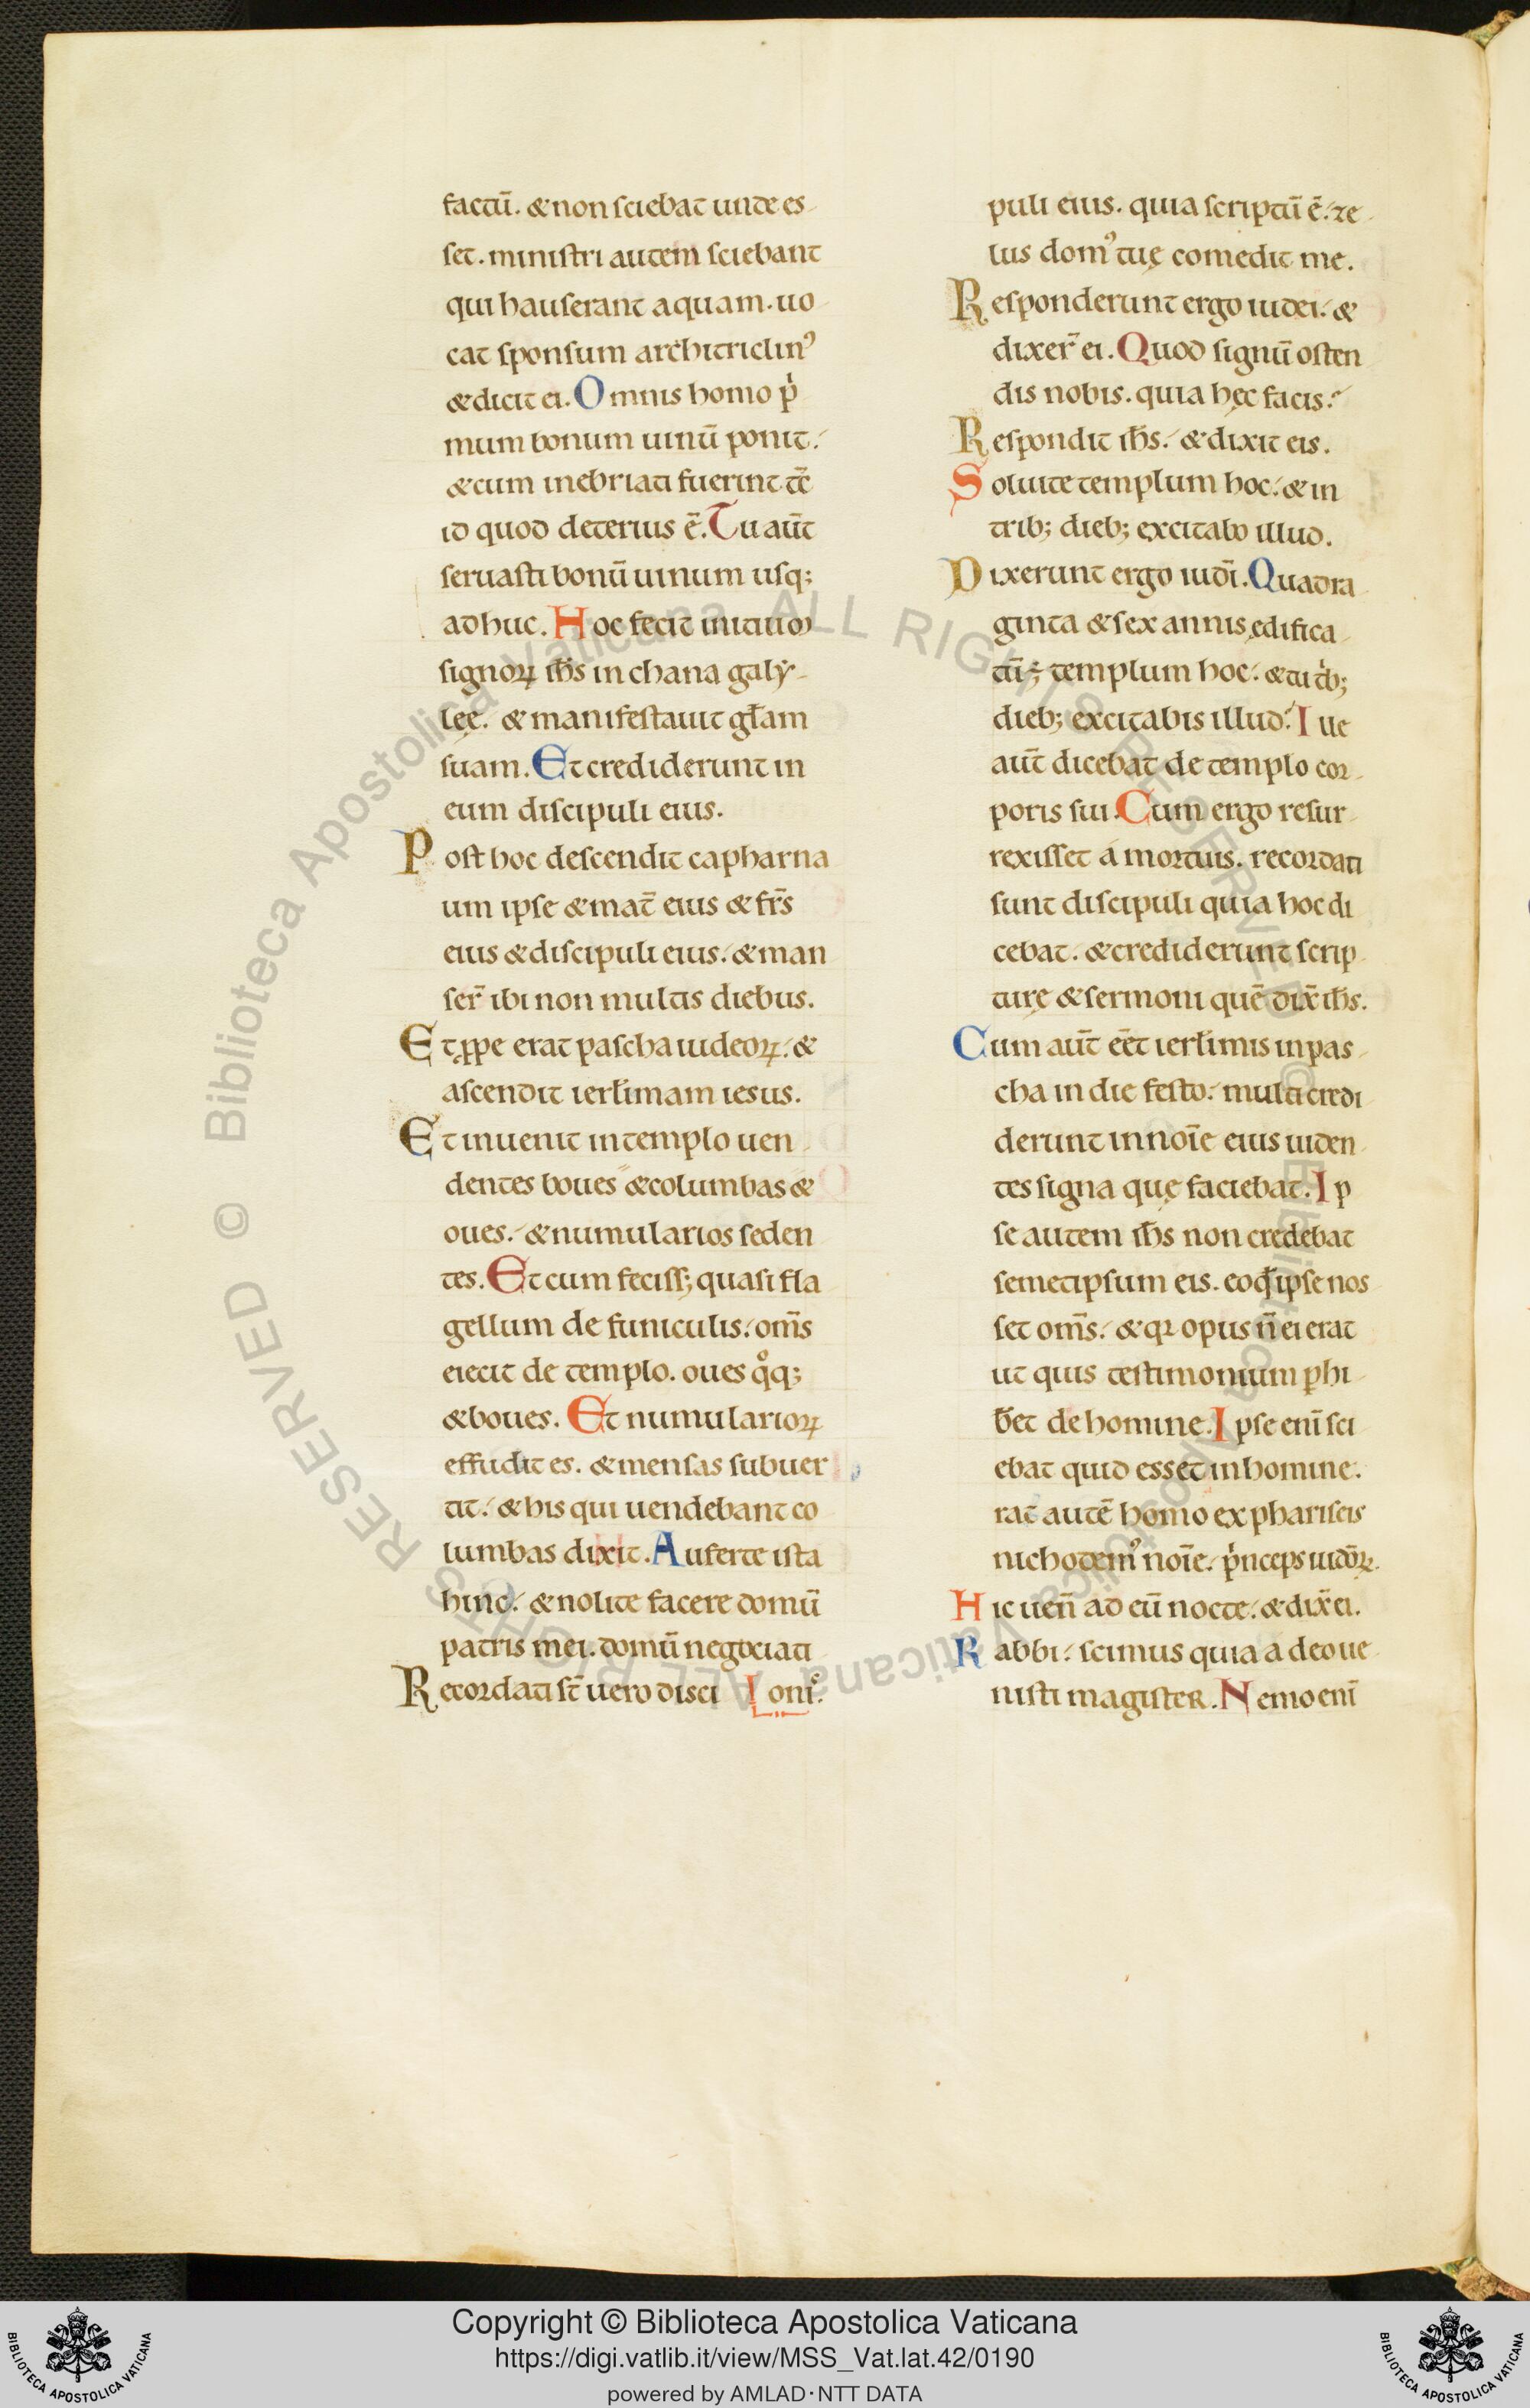 factū. & non sciebat unde es
set. ministri autem sciebant
qui hauserant aquam. uo
cat sponsum architriclinꝰ
& dicit ei. Omnis homo p̍
mum bonum uinū ponit.
& cum inebriati fuerint tc̄
id quod deterius ē. Tu aūt
seruasti bonū uinum usq;
adhuc. Hoc fecit initiū
signoꝝ ih̄s in chana galẏ
leę. & manifestauit gl̄am
suam. Et crediderunt in
eum discipuli eius.
Post hoc descendit capharna
um ipse & mat̄ eius & fr̄s
eius & discipuli eius. & man
ser̄ ibi non multis diebus.
Et ꝓpe erat pascha iudeoꝝ. &
ascendit ierl̄imam iesus.
Et inuenit in templo uen
dentes boues & columbas &
oues. & numularios seden
tes. Et cum feciss; quasi fla
gellum de funiculis. om̄s
eiecit de templo. oues qͦq;
& boues. Et numularioꝝ
effudit es. & mensas subuer
tit. & his qui uendebant co
lumbas dixit. Auferte ista
hinc. & nolite facere domū
patris mei. domū negotiati
Recordati st̄ uero disci onis.
puli eius. quia scriptū ē. ze
lus domꝰ tuę comedit me.
Responderunt ergo iudei. &
dixer̄ ei. Quod signū osten
dis nobis. quia hęc facis?
Respondit ih̄s. & dixit eis.
Soluite templum hoc. & in
trib; dieb; excitabo illud.
Dixerunt ergo iudi̅. Quadra
ginta & sex annis ędifica
tū ÷ templum hoc. & tu t̍b;
dieb; excitabis illud? Ille
aūt dicebat de templo cor
poris sui. Cum ergo resur
rexisset a mortuis. recordati
sunt discipuli quia hoc di
cebat. & crediderunt scrip
turę & sermoni quē dix̄ ih̄s.
Cum aūt eēt ierl̄imis in pas
cha in die festo. multi credi
derunt in noīe eius uiden
tes signa quę faciebat. Ip
se autem ih̄s non credebat
semetipsum eis. eo qđ ipse nos
set om̄s. & qꝛ opus n̄ ei erat
ut quis testimonium ꝑhi
b̄et de homine. Ipse enī sci
ebat quid esset in homine.
rat autē homo ex phariseis
nichodemꝰ noīe. p̍nceps iudōꝝ.
Hic uen̄ ad eū nocte. & dix̄ ei.
Rabbi. scimus quia a deo ue
nisti magister. Nemo enī
Copyright © Biblioteca Apostolica Vaticana
https://digi.vatlib.it/view/MSS_Vat.lat.42/0190
powered by AMLAD·NTT DATA
BIBLIOTECA APOSTOLICA VATICANA
BIBLIOTECA APOSTOLICA VATICANA
© Biblioteca Apostolica Vaticana ALL RIGHTS RESERVED
© Biblioteca Apostolica Vaticana ALL RIGHTS RESERVED